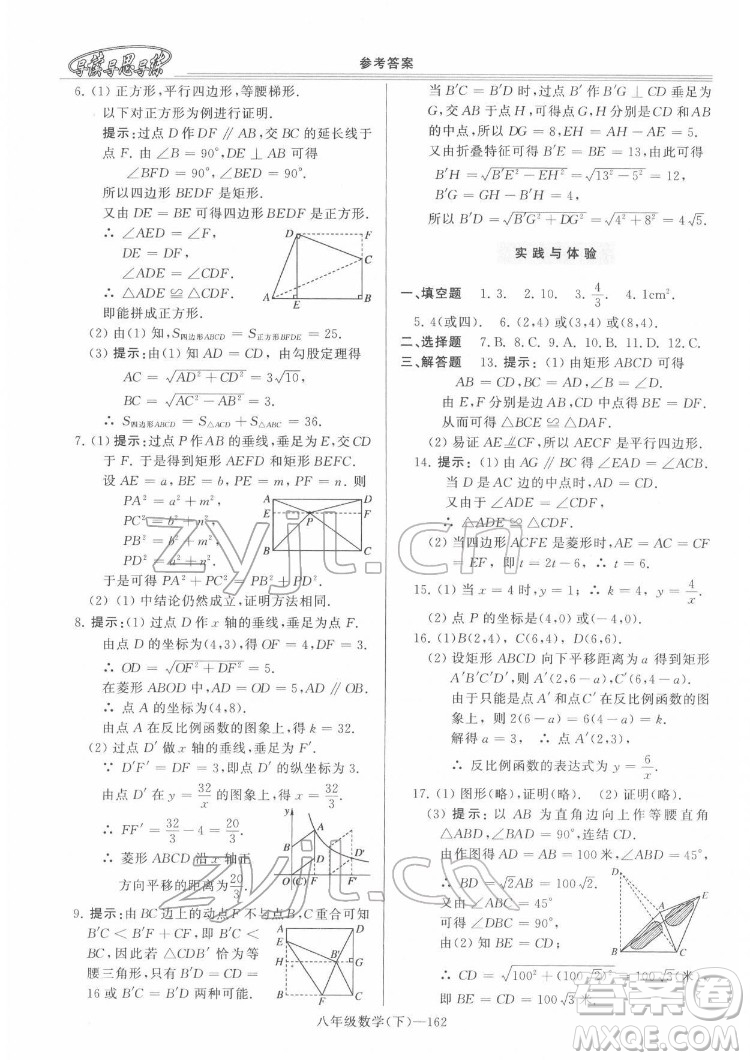 导读导思导练
参考答案
6. (1) 正方形,平行四边形,等腰梯形.
以下对正方形为例进行证明.
提示:过点 D 作 DF ∥ AB,交 BC 的延长线于
点 F. 由 ∠B = 90°,DE ⊥ AB 可得
∠BFD = 90°,∠BED = 90°.
所以四边形 BEDF 是矩形.
又由 DE = BE 可得四边形 BEDF 是正方形.
∴ ∠AED = ∠F,
∠ADE = ∠CDF.
∴ △ADE ≌ △CDF.
即能拼成正方形.
(2) 由(1) 知,S四边形ABCD = S正方形BFDE = 25.
(3) 提示:由(1) 知 AD = CD,由勾股定理得
AC = √(AD² + CD²) = 3√10,
BC = √(AC² − AB²) = 3.
∴ S四边形ABCD = S△ACD + S△ABC = 36.
D F
C
A E B
7. (1) 提示:过点 P 作AB 的垂线,垂足为 E,交CD
于 F. 于是得到矩形 AEFD 和矩形 BEFC.
设 AE = a,BE = b,PE = m,PF = n. 则
PA² = a² + m²,
PC² = b² + n²,
PB² = b² + m²,
PD² = a² + n².
于是可得 PA² + PC² = PB² + PD².
(2) (1) 中结论仍然成立,证明方法相同.
A D
E F
P
B C
8. 提示:(1) 过点 D 作 x 轴的垂线,垂足为 F.
由点 D 的坐标为(4,3),得 OF = 4,DF = 3.
∴ OD = √(OF² + DF²) = 5.
在菱形 ABOD 中,OD = AD = 5,AD ∥ OB.
∴ 点 A 的坐标为(4,8).
由点 A 在反比例函数的图象上,得 k = 32.
(2) 过点 D′ 做 x 轴的垂线,垂足为 F′.
∵ D′F′ = DF = 3,∴ 点 D′ 的纵坐标为 3.
由点 D′ 在 y = 32/x 的图象上,得 OF′ = 32/3.
∴ FF′ = 32/3 − 4 = 20/3.
∴ 菱形 ABCD 沿 x 轴正
方向平移的距离为20/3.
y A
B D D′
O(C) F F′ x
9. 提示:由 BC 边上的动点 F 不与点 B,C 重合可知,
B′C < B′F + CF = BC. 即
B′C < BC,
因此若 △CDB′ 恰为等
腰三角形,只有 B′D = DC =
16 或 B′C = B′D 两种可能.
A D
E
H B′ G
B F C
当 B′C = B′D 时,过点 B′ 作 B′G ⊥ CD 于点
G,交 AB 于点 H,可得点 G,H 分别是 CD 和 AB
的中点,所以 DG = 8,EH = AH − AE = 5.
又由折叠特征可得 B′E = BE = 13,由此可得
B′H = √(B′E² − EH²) = √(13² − 5²) = 12,
B′G = GH − B′H = 16 − 12 = 4.
所以 B′D = √(B′G² + DG²) = √(4² + 8²) = 4√5.
实践与体验
一、填空题 1. 3. 2. 10. 3. 4/3. 4. 1cm².
5. 4(或四). 6. (2,4) 或(3,4) 或(8,4).
二、选择题 7. B. 8. C. 9. A. 10. D. 11. B. 12. C.
三、解答题 13. 提示:(1) 由矩形 ABCD 可得
AB = CD,AD = BC,∠B = ∠D.
由 E,F 分别是边 BC,AD 的中点,得 BE = DF.
从而可得 △ABE ≌ △DAF.
(2) 易证 AE ∥= CF,所以 AECF 是平行四边形.
14. 提示:(1) 由 AG ∥ BC 得 ∠EAD = ∠ACB.
当 D 是 AC 边的中点时,AD = CD.
又由 ∠ADE = ∠CDF,
∴ △ADE ≌ △CDF.
(2) 当四边形 ACFE 是菱形时,AE = AC =
CF = EF. 即 t = 2t − 6. ∴ t = 6.
15. (1) 当 x = 4 时,y = 1;∴ k = 4,y = 4/x.
(2) 点 P 的坐标是(0,5) 或(0,−3).
16. (1)B(2,4),C(6,4),D(6,6).
(2) 设矩形 ABCD 向下平移距离为 a 得到矩形
A′B′C′D′,则 A′(2,6 − a),B′(2,4 − a),
C′(6,4 − a),D′(6,6 − a).
由于只能是点 A′和点C′在反比例函数的图象上,
所以 2(6 − a) = 6(4 − a).
解得 a = 3,∴ 点 A′(2,3),
∴ 反比例函数的表达式为 y = 6/x.
17. (1) 图(略),证明(略). (2) 证明(略).
(3) 提示:以 AB 为直角边向上作等腰直角
△ABD,∠BAD = 90°,连结 CD.
由作图得 AD = AB = 100米,∠ABD = 45°,
∴ BD = √2AB = 100√2米.
又由 ∠ABC = 45°
可得 ∠DBC = 90°.
由(2) 可知 BE = CD.
∴ CD = √(100² + (100√2)²) = 100√3(米).
即 BE = CD = 100√3(米).
D E
A
B C
zyjl.cn
zyjl.cn
答案圈
八年级数学(下)—162